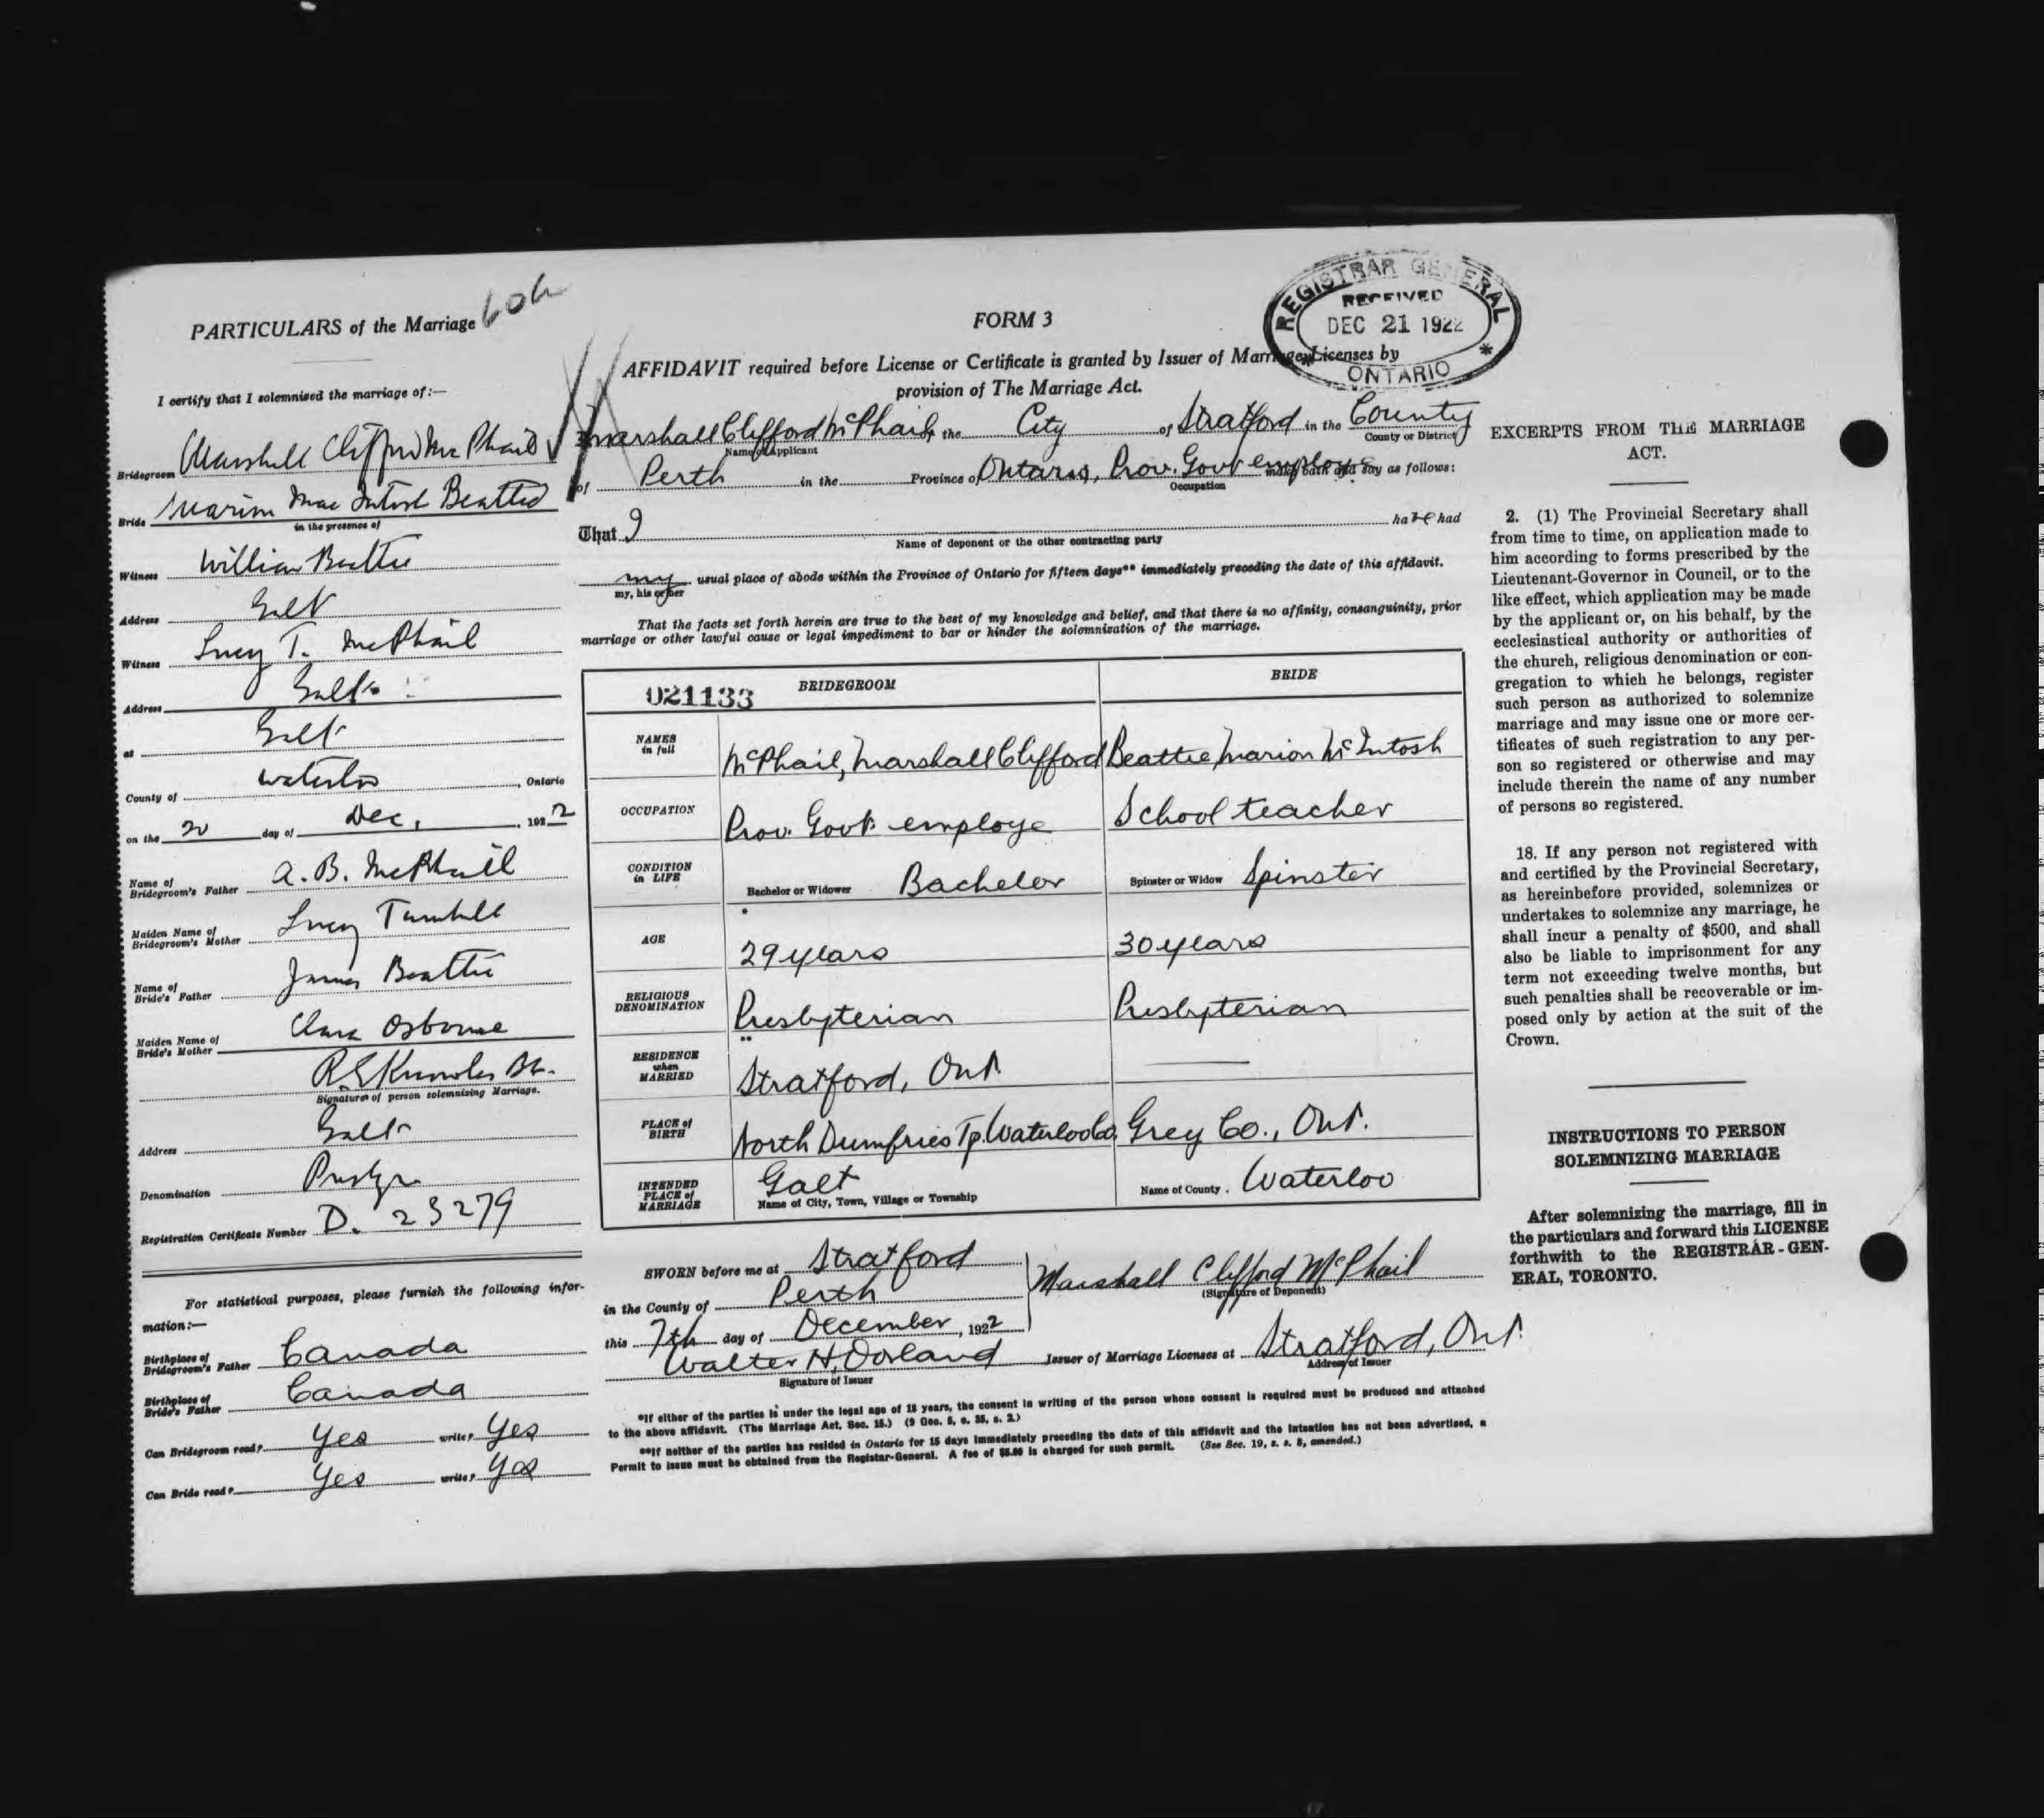 PARTICULARS of the Marriage
I certify that I solemnized the marriage of:—
Bridegroom Marshall Clifford McPhail
Bride Marion MacIntosh Beattie
in the presence of
Witness William Beattie
Address Galt
Witness Lucy T. McPhail
Address Galt
at Galt
County of Waterloo, Ontario
on the 20 day of Dec. 1922
Name of Bridegroom's Father A. B. McPhail
Maiden Name of Bridegroom's Mother Lucy Turnbull
Name of Bride's Father James Beattie
Maiden Name of Bride's Mother Clara Osborne
R. E. Knowles
Signature of person solemnizing Marriage.
Address Galt
Denomination
Registration Certificate Number D. 23279
For statistical purposes, please furnish the following infor-
mation:—
Birthplace of Bridegroom's Father Canada
Birthplace of Bride's Father Canada
Can Bridegroom read? Yes write? Yes
Can Bride read? Yes write? Yes
FORM 3
REGISTRAR GENERAL
RECEIVED
DEC 21 1922
ONTARIO
AFFIDAVIT required before License or Certificate is granted by Issuer of Marriage Licenses by
provision of The Marriage Act.
I Marshall Clifford McPhail of the City of Stratford in the County
Name of Applicant County or District
of Perth in the Province of Ontario, Prov. Govt employe make oath and say as follows:
Occupation
That I have had
Name of deponent or the other contracting party
my usual place of abode within the Province of Ontario for fifteen days** immediately preceding the date of this affidavit.
my, his or her
That the facts set forth herein are true to the best of my knowledge and belief, and that there is no affinity, consanguinity, prior
marriage or other lawful cause or legal impediment to bar or hinder the solemnization of the marriage.
021133 BRIDEGROOM BRIDE
NAMES in full McPhail, Marshall Clifford Beattie Marion McIntosh
OCCUPATION Prov. Govt. employe School teacher
CONDITION in LIFE Bachelor or Widower Bachelor Spinster or Widow Spinster
AGE 29 years 30 years
RELIGIOUS DENOMINATION Presbyterian Presbyterian
RESIDENCE when MARRIED Stratford, Ont. —
PLACE of BIRTH North Dumfries Tp. Waterloo Co. Grey Co., Ont.
INTENDED PLACE of MARRIAGE Galt Name of County. Waterloo
Name of City, Town, Village or Township
SWORN before me at Stratford
in the County of Perth
this 7th day of December, 1922
Marshall Clifford McPhail
(Signature of Deponent)
Walter H. Dorland Issuer of Marriage Licenses at Stratford, Ont.
Signature of Issuer Address of Issuer
*If either of the parties is under the legal age of 18 years, the consent in writing of the person whose consent is required must be produced and attached
to the above affidavit. (The Marriage Act, Sec. 15.) (9 Geo. 5, c. 35, s. 2.)
**If neither of the parties has resided in Ontario for 15 days immediately preceding the date of this affidavit and the intention has not been advertised, a
Permit to issue must be obtained from the Registar-General. A fee of $5.00 is charged for such permit. (See Sec. 19, s. s. 8, amended.)
EXCERPTS FROM THE MARRIAGE
ACT.
2. (1) The Provincial Secretary shall
from time to time, on application made to
him according to forms prescribed by the
Lieutenant-Governor in Council, or to the
like effect, which application may be made
by the applicant or, on his behalf, by the
ecclesiastical authority or authorities of
the church, religious denomination or con-
gregation to which he belongs, register
such person as authorized to solemnize
marriage and may issue one or more cer-
tificates of such registration to any per-
son so registered or otherwise and may
include therein the name of any number
of persons so registered.
18. If any person not registered with
and certified by the Provincial Secretary,
as hereinbefore provided, solemnizes or
undertakes to solemnize any marriage, he
shall incur a penalty of $500, and shall
also be liable to imprisonment for any
term not exceeding twelve months, but
such penalties shall be recoverable or im-
posed only by action at the suit of the
Crown.
INSTRUCTIONS TO PERSON
SOLEMNIZING MARRIAGE
After solemnizing the marriage, fill in
the particulars and forward this LICENSE
forthwith to the REGISTRAR-GEN-
ERAL, TORONTO.